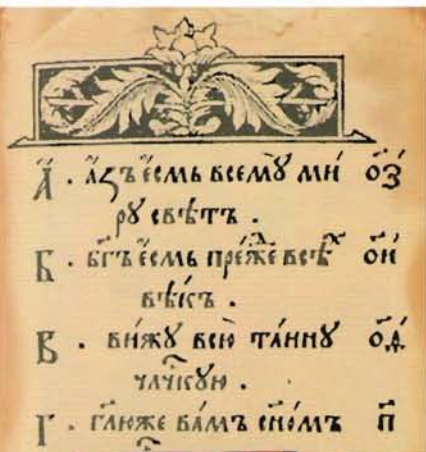 А҆ . А҆зъ є҆смь всемꙋ̀ ми́ ѻ҃з
рꙋ свѣ́тъ .
Б . бг҃ъ є҆смь пре́жⷣе всѣⷯ ѻ҃и
вѣ́къ .
В . ви́жꙋ всю̀ та́йнꙋ ѻ҃ѳ
члч҃кꙋю .
Г . гл҃юже ва́мъ сн҃омъ п҃